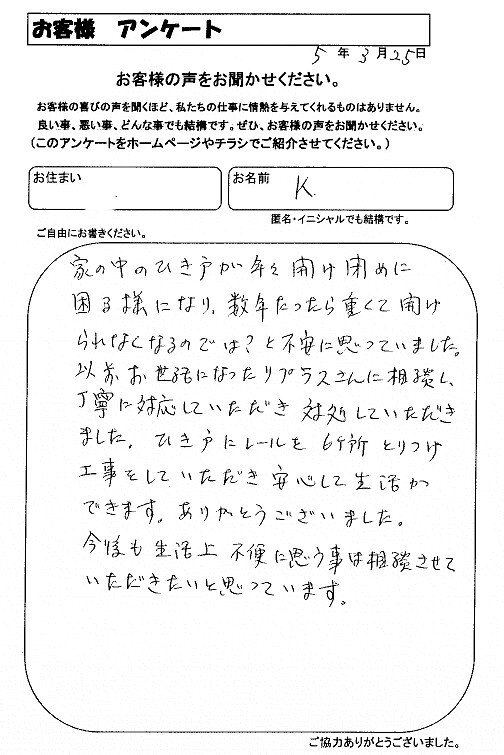 お客様 アンケート
5 年 3 月 25 日
お客様の声をお聞かせください。
お客様の喜びの声を聞くほど、私たちの仕事に情熱を与えてくれるものはありません。
良い事、悪い事、どんな事でも結構です。ぜひ、お客様の声をお聞かせください。
(このアンケートをホームページやチラシでご紹介させてください。)
お住まい
お名前 K.
匿名・イニシャルでも結構です。
ご自由にお書きください。
家の中のひき戸が年々開け閉めに
困る様になり、数年たったら重くて開け
られなくなるのでは?と不安に思っていました。
以前お世話になったリプラスさんに相談し、
丁寧に対応していただき 対処していただき
ました。ひき戸にレールを 6ケ所 とりつけ
工事をしていただき 安心して生活が
できます。ありがとうございました。
今後も生活上 不便に思う事は相談させて
いただきたいと思っています。
ご協力ありがとうございました。